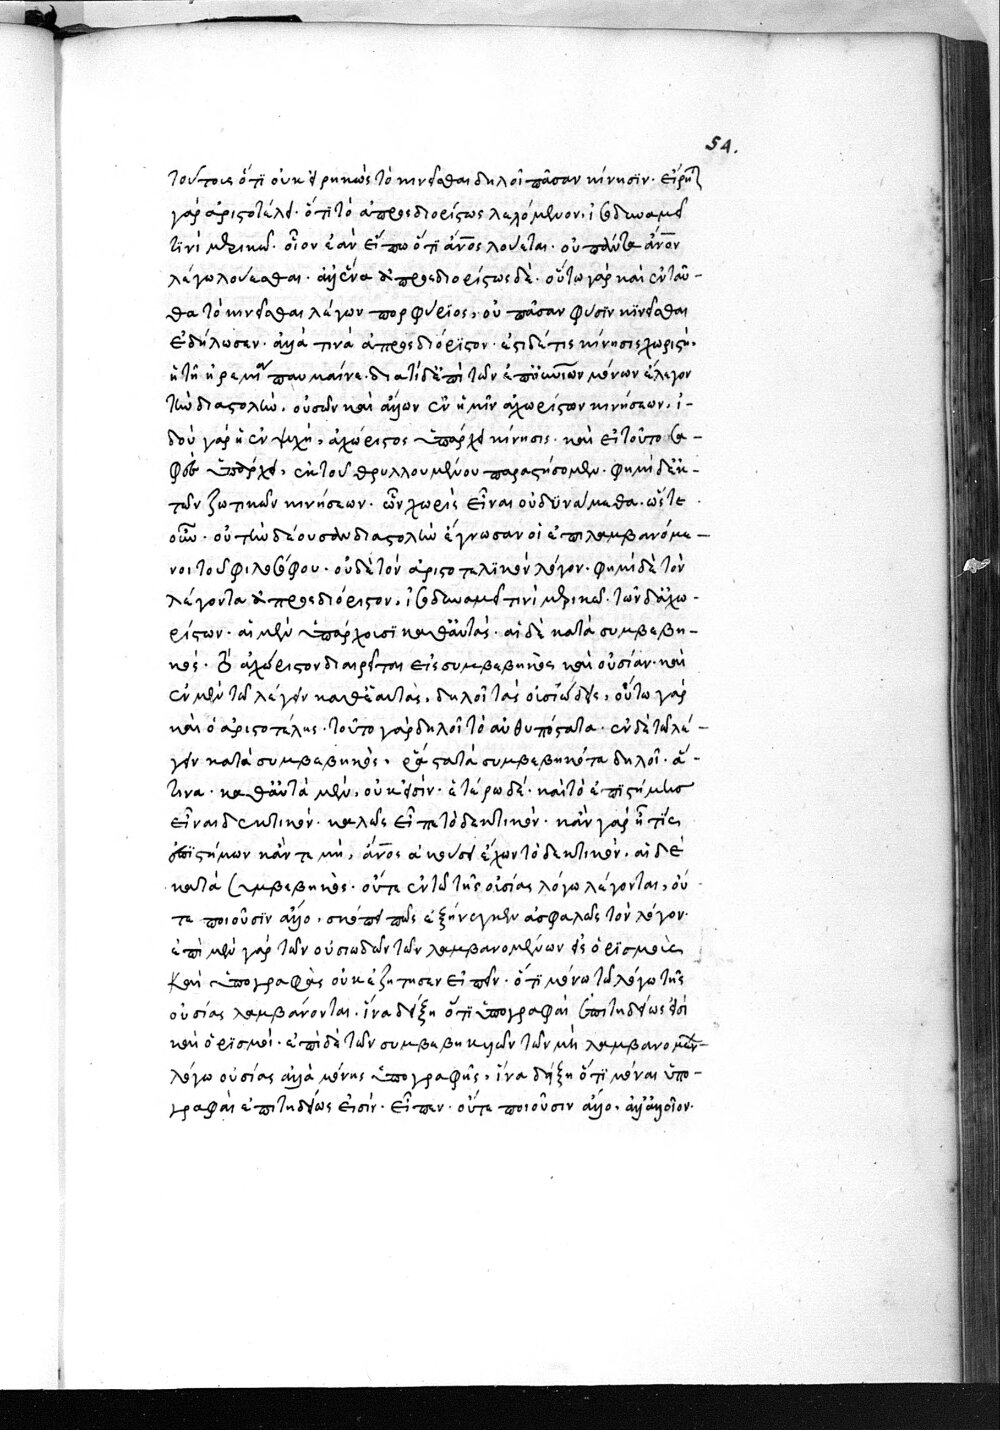 54.
τούτοις ὅτι οὐκ εἰρηκὼς τὸ κινεῖσθαι δηλοῖ πᾶσαν κίνησιν· εἴρηται
γὰρ ἀριστοτέλει· ὅτι τὸ ἀπροσδιορίστως λεγόμενον, ἰσοδυναμεῖ
τινὶ μερικῶ· οἷον ἐὰν εἴπω ὅτι ἄνος λούεται· οὐ πάντα ἄνον
λέγω λούεσθαι· ἀλλ' ἕνα ἀπροσδιορίστως δὲ· οὕτω γὰρ καὶ ἐνταῦ-
θα τὸ κινεῖσθαι λέγων πορφύριος, οὐ πᾶσαν φύσιν κινεῖσθαι
ἐδήλωσεν· ἀλλὰ τινὰ ἀπροσδιόριστον· ἔστι δέ τις κίνησις χωριστὴ,
ἡ τῆ ἠρεμία
τὴν διαστολὴν, οὐσῶν καὶ ἄλλων ἐν ἡμῖν ἀχωρίστων κινήσεων, ἰ-
δοὺ γὰρ ἡ ἐν ψυχῆ, ἀχώριστος ὑπάρχει κίνησις· καὶ εἰ τοῦτο σα-
φὲς ὑπάρχει, ἐκ τοῦ θρυλλουμένου παραστήσομεν· φημὶ δὲ ἐκ
τῶν ζωτικῶν κινήσεων· ὧν χωρὶς εἶναι οὐ δυνάμεθα· ὥστε
οὖν· οὐ τὴν δέουσαν διαστολὴν ἔγνωσαν οἱ ἐπιλαμβανόμε-
νοι τοῦ φιλοσόφου· οὐδὲ τὸν ἀριστοτελικὸν λόγον· φημὶ δὲ τὸν
λέγοντα ἀπροσδιόριστον, ἰσοδυναμεῖ τινὶ μερικῶ· τῶν δ' ἀχω-
ρίστων· αἱ μὲν ὑπάρχουσι καθ' αὑτὰς· αἱ δὲ κατὰ συμβεβη-
κός· τὸ ἀχώριστον διαιρεῖται εἰς συμβεβηκὸς καὶ οὐσίαν· καὶ
ἐν μὲν τῶ λέγειν καθ' ἑαυτὰς, δηλοῖ τὰς οὐσιώδεις, οὕτω γὰρ
καὶ ὁ ἀριστοτέλης· τοῦτο γὰρ δηλοῖ τὸ αὐθυπόστατα· ἐν δὲ τῶ λέ-
γειν κατὰ συμβεβηκὸς, τὰ συμβεβηκότα δηλοῖ· ἅ-
τινα· καθ' αὑτὰ μὲν, οὐκ εἰσὶν· ἑτέρω δέ· καὶ τὸ ἐπιστήμης
εἶναι δεκτικόν· καλῶς εἶπε τὸ δεκτικόν· κἂν γὰρ ἦ τίς
ἐπιστήμων κἄν τε μὴ, ἄνος ἀκούσει ἔχων τὸ δεκτικόν, αἱ δὲ
κατὰ συμβεβηκὸς· οὔτε ἐν τῶ τῆς οὐσίας λόγω λέγονται, οὔ-
τε ποιοῦσιν ἄλλο, σκόπει πῶς ἐξήνεγκεν ἀσφαλῶς τὸν λόγον·
ἐπὶ μὲν γὰρ τῶν οὐσιωδῶν τῶν λαμβανομένων εἰς ὁρισμοὺς
καὶ ὑπογραφὰς οὐκ ἐζήτησεν εἰπεῖν· ὅτι μόνω τῶ λόγω τῆς
οὐσίας λαμβάνονται· ἵνα δείξη ὅτι ὑπογραφαὶ ἐπιτηδείως εἰσὶ
καὶ ὁρισμοί· ἐπὶ δὲ τῶν συμβεβηκότων τῶν μὴ λαμβανομένων
λόγω οὐσίας ἀλλὰ μόνης ὑπογραφῆς, ἵνα δείξη ὅτι μόναι ὑπο-
γραφαὶ ἐπιτηδείως εἰσὶν· εἶπεν· οὔτε ποιοῦσιν ἄλλο, ἀλλ' ἀλλοῖον·